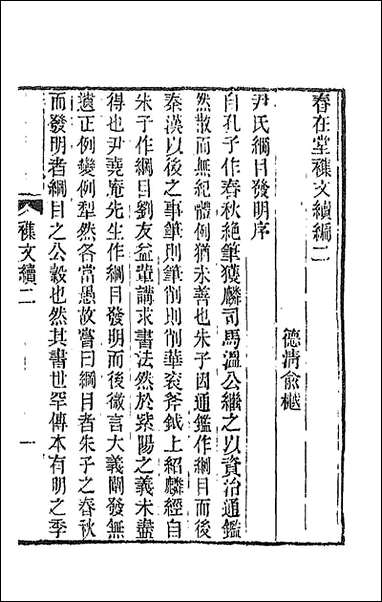 春在堂襍文續編二
德清俞樾
尹氏綱目發明序
自孔子作春秋絶筆獲麟司馬溫公繼之以資治通鑑
然散而無紀體例猶未善也朱子因通鑑作綱目而後
秦漢以後之事筆則筆削則削華衮斧鉞上紹麟經自
朱子作綱目劉友益輩講求書法然於紫陽之義未盡
得也尹堯庵先生作綱目發明而後微言大義闡發無
遺正例變例犁然各當愚故嘗曰綱目者朱子之春秋
而發明者綱目之公穀也然其書世罕傳本有明之季
襍文續二
一